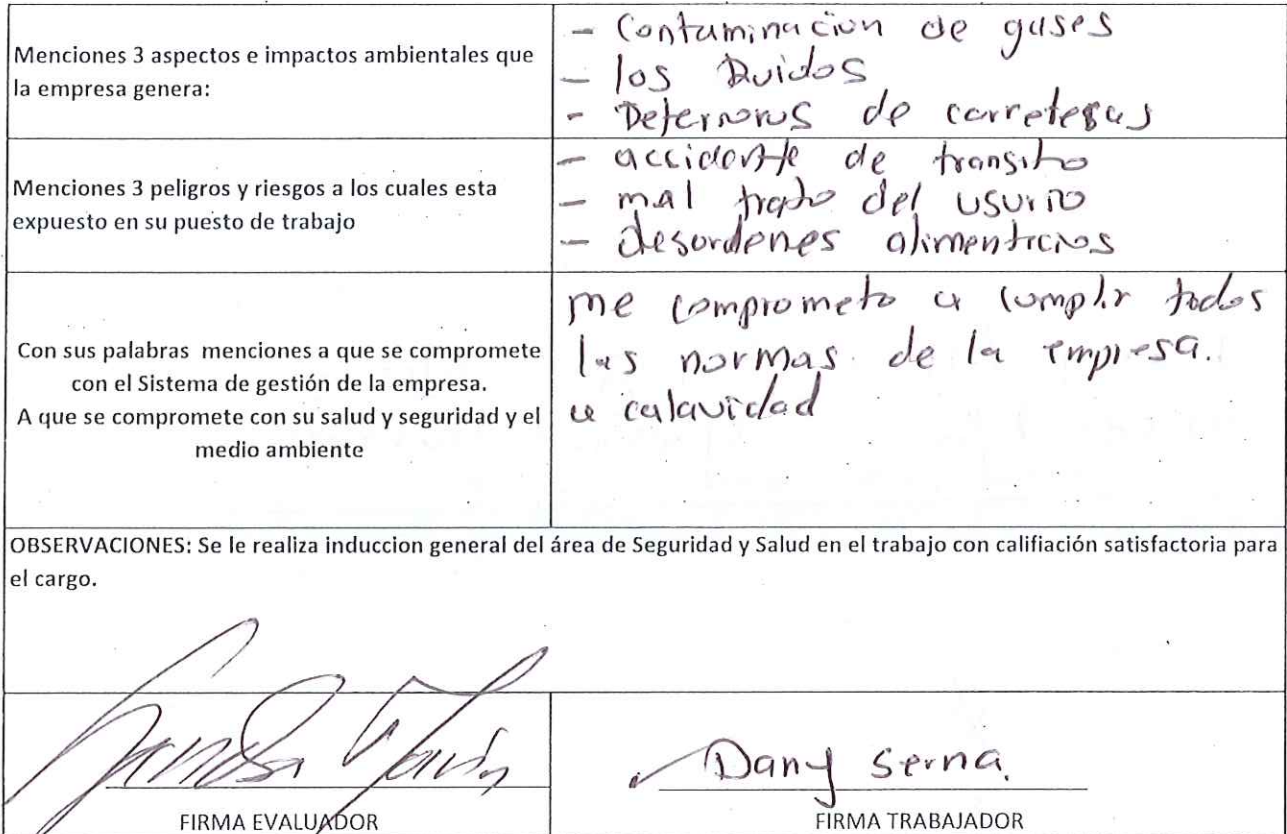 Menciones 3 aspectos e impactos ambientales que
la empresa genera:
- Contaminacion de gases
- los Ruidos
- Deterioros de carreteras
Menciones 3 peligros y riesgos a los cuales esta
expuesto en su puesto de trabajo
- accidente de transito
- mal trato del usurio
- desordenes alimenticios
Con sus palabras menciones a que se compromete
con el Sistema de gestión de la empresa.
A que se compromete con su salud y seguridad y el
medio ambiente
me comprometo a cumplir todos
las normas de la empresa.
a calavidad
OBSERVACIONES: Se le realiza induccion general del área de Seguridad y Salud en el trabajo con califiación satisfactoria para
el cargo.
Dany Serna.
FIRMA EVALUADOR
FIRMA TRABAJADOR